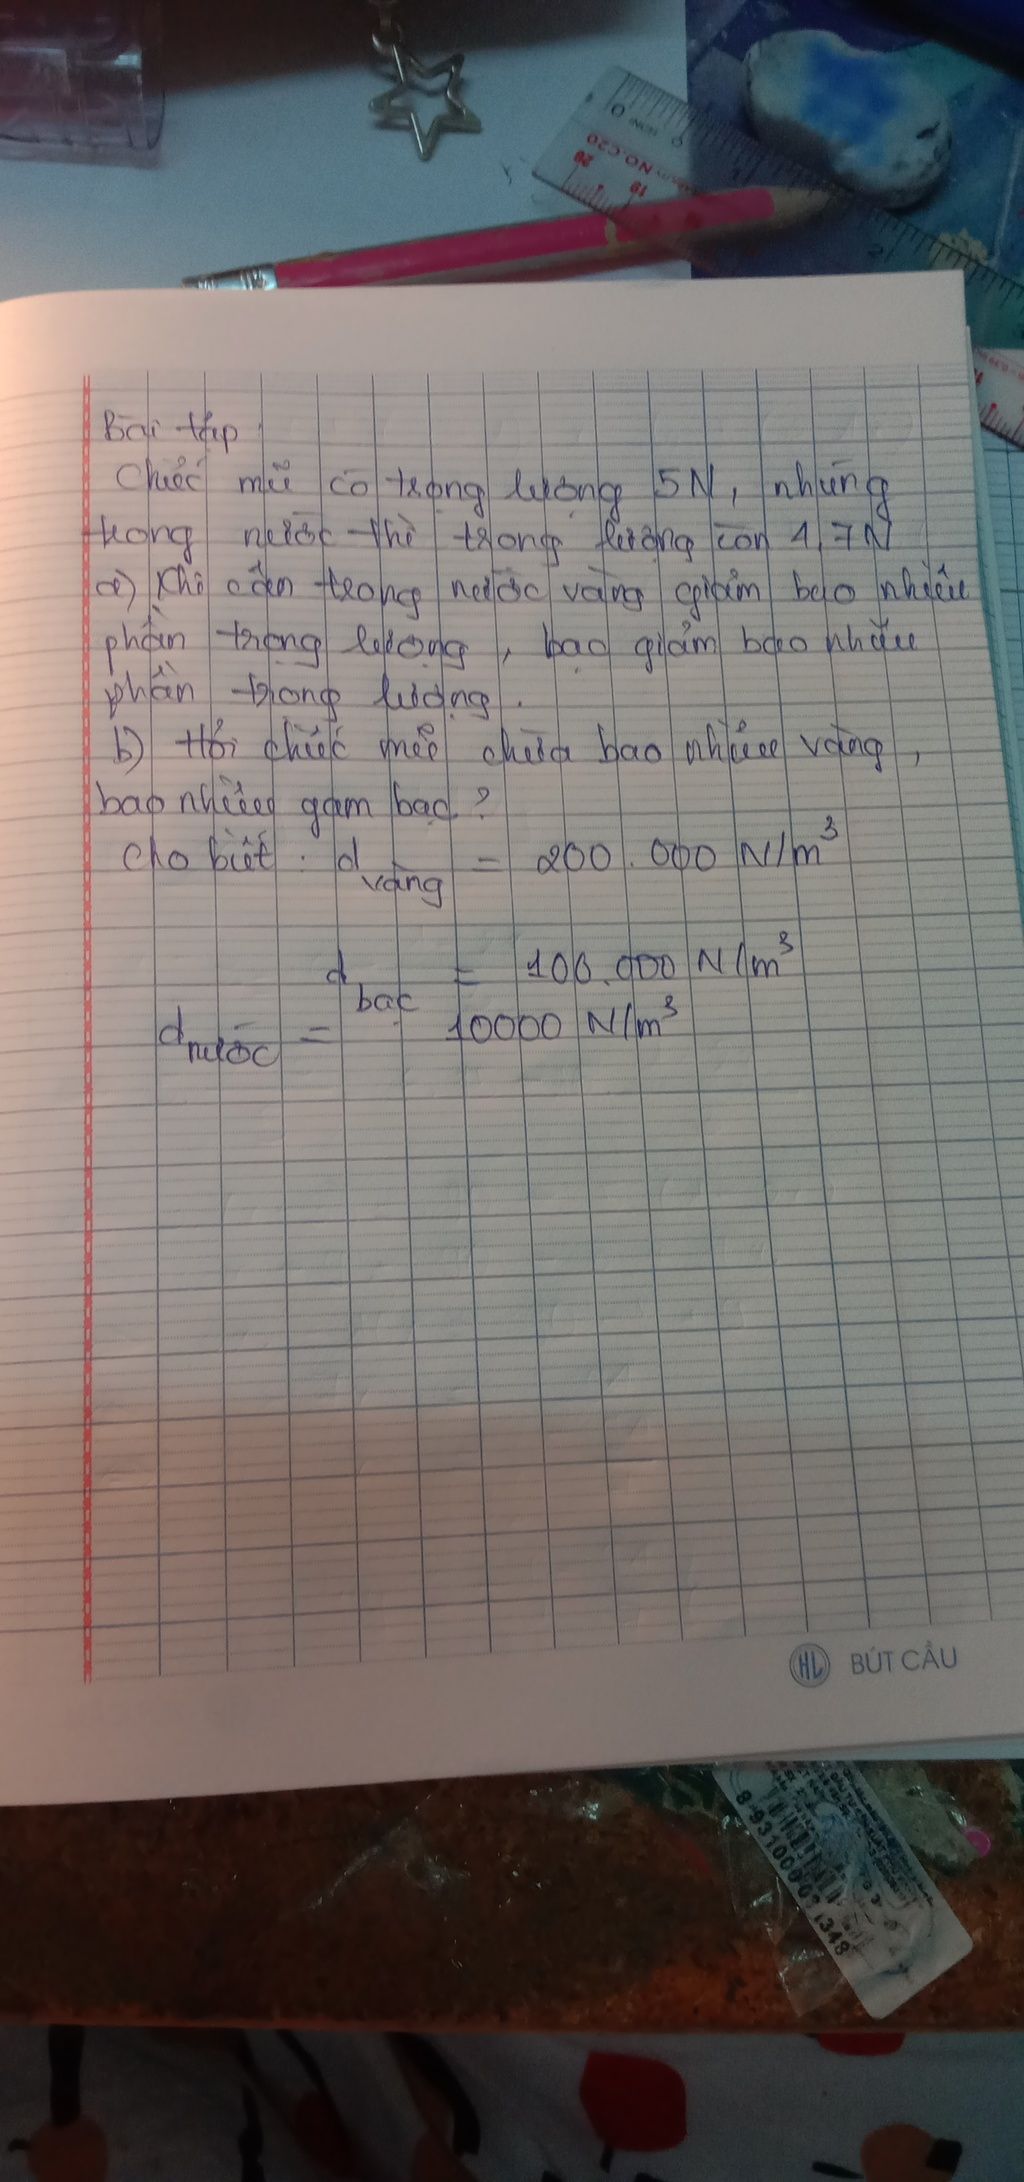 Bài tập
Chiếc mũ có trọng lượng 5N, nhúng
trong nước thì trọng lượng còn 1,7N
a) Khi cân trong nước vàng giảm bao nhiêu
phần trọng lượng, bạc giảm bao nhiêu
phần trọng lượng.
b) Hỏi chiếc mũ chứa bao nhiêu vàng,
bao nhiêu gam bạc?
Cho biết: d vàng = 200.000 N/m³
d bạc = 106.000 N/m³
d nước = 10000 N/m³
HL BÚT CẦU
NO.C20